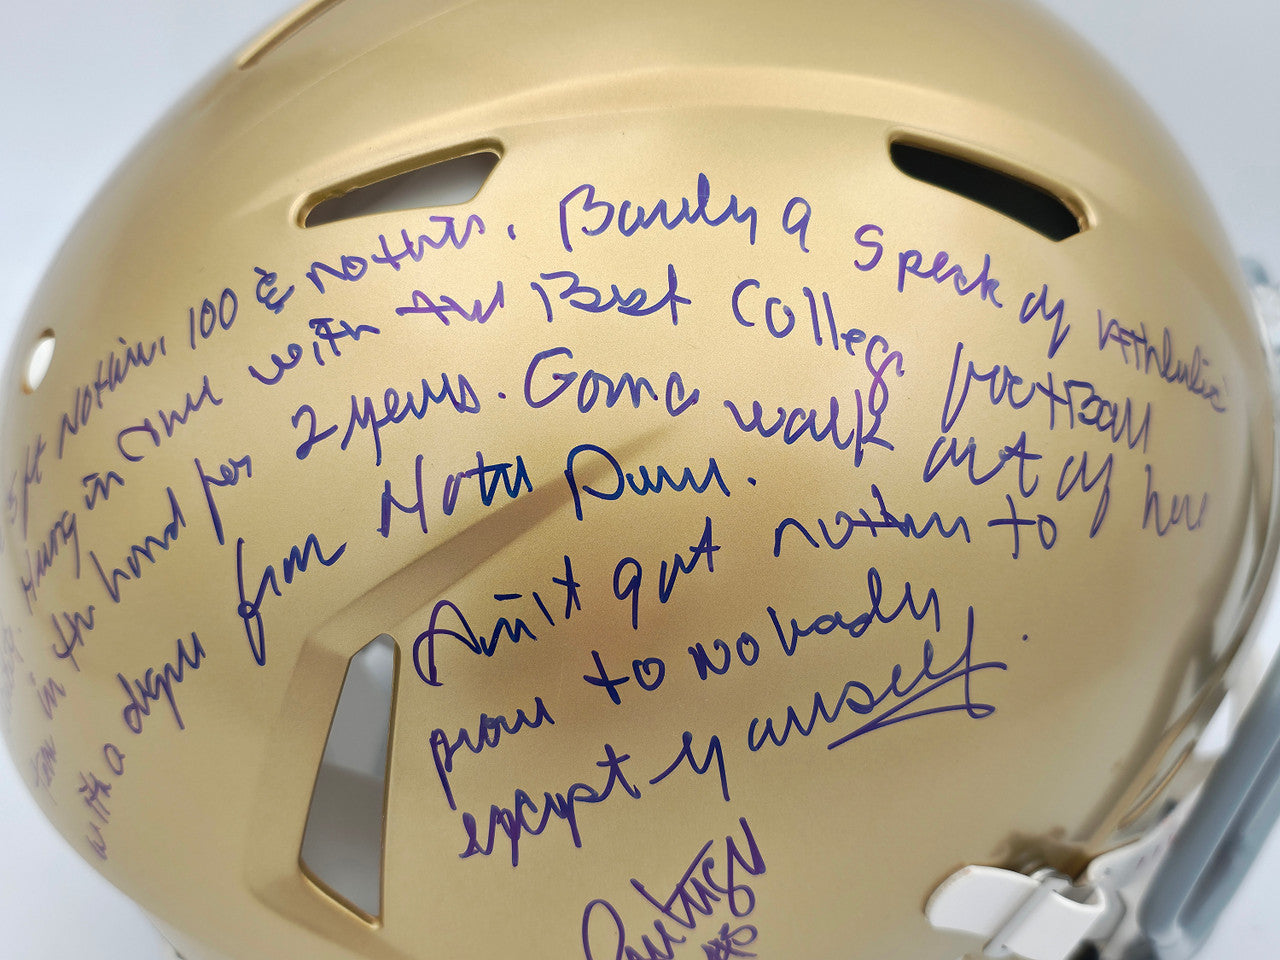 5 ft Nothin, 100 & nothin. Barely a speck of Athletic
Hung in there with the Best College football
team in the land for 2 years. Gonna walk out of here
with a degree from Notre Dame.
Ain't gat nothin to
prove to Nobody
except yourself.